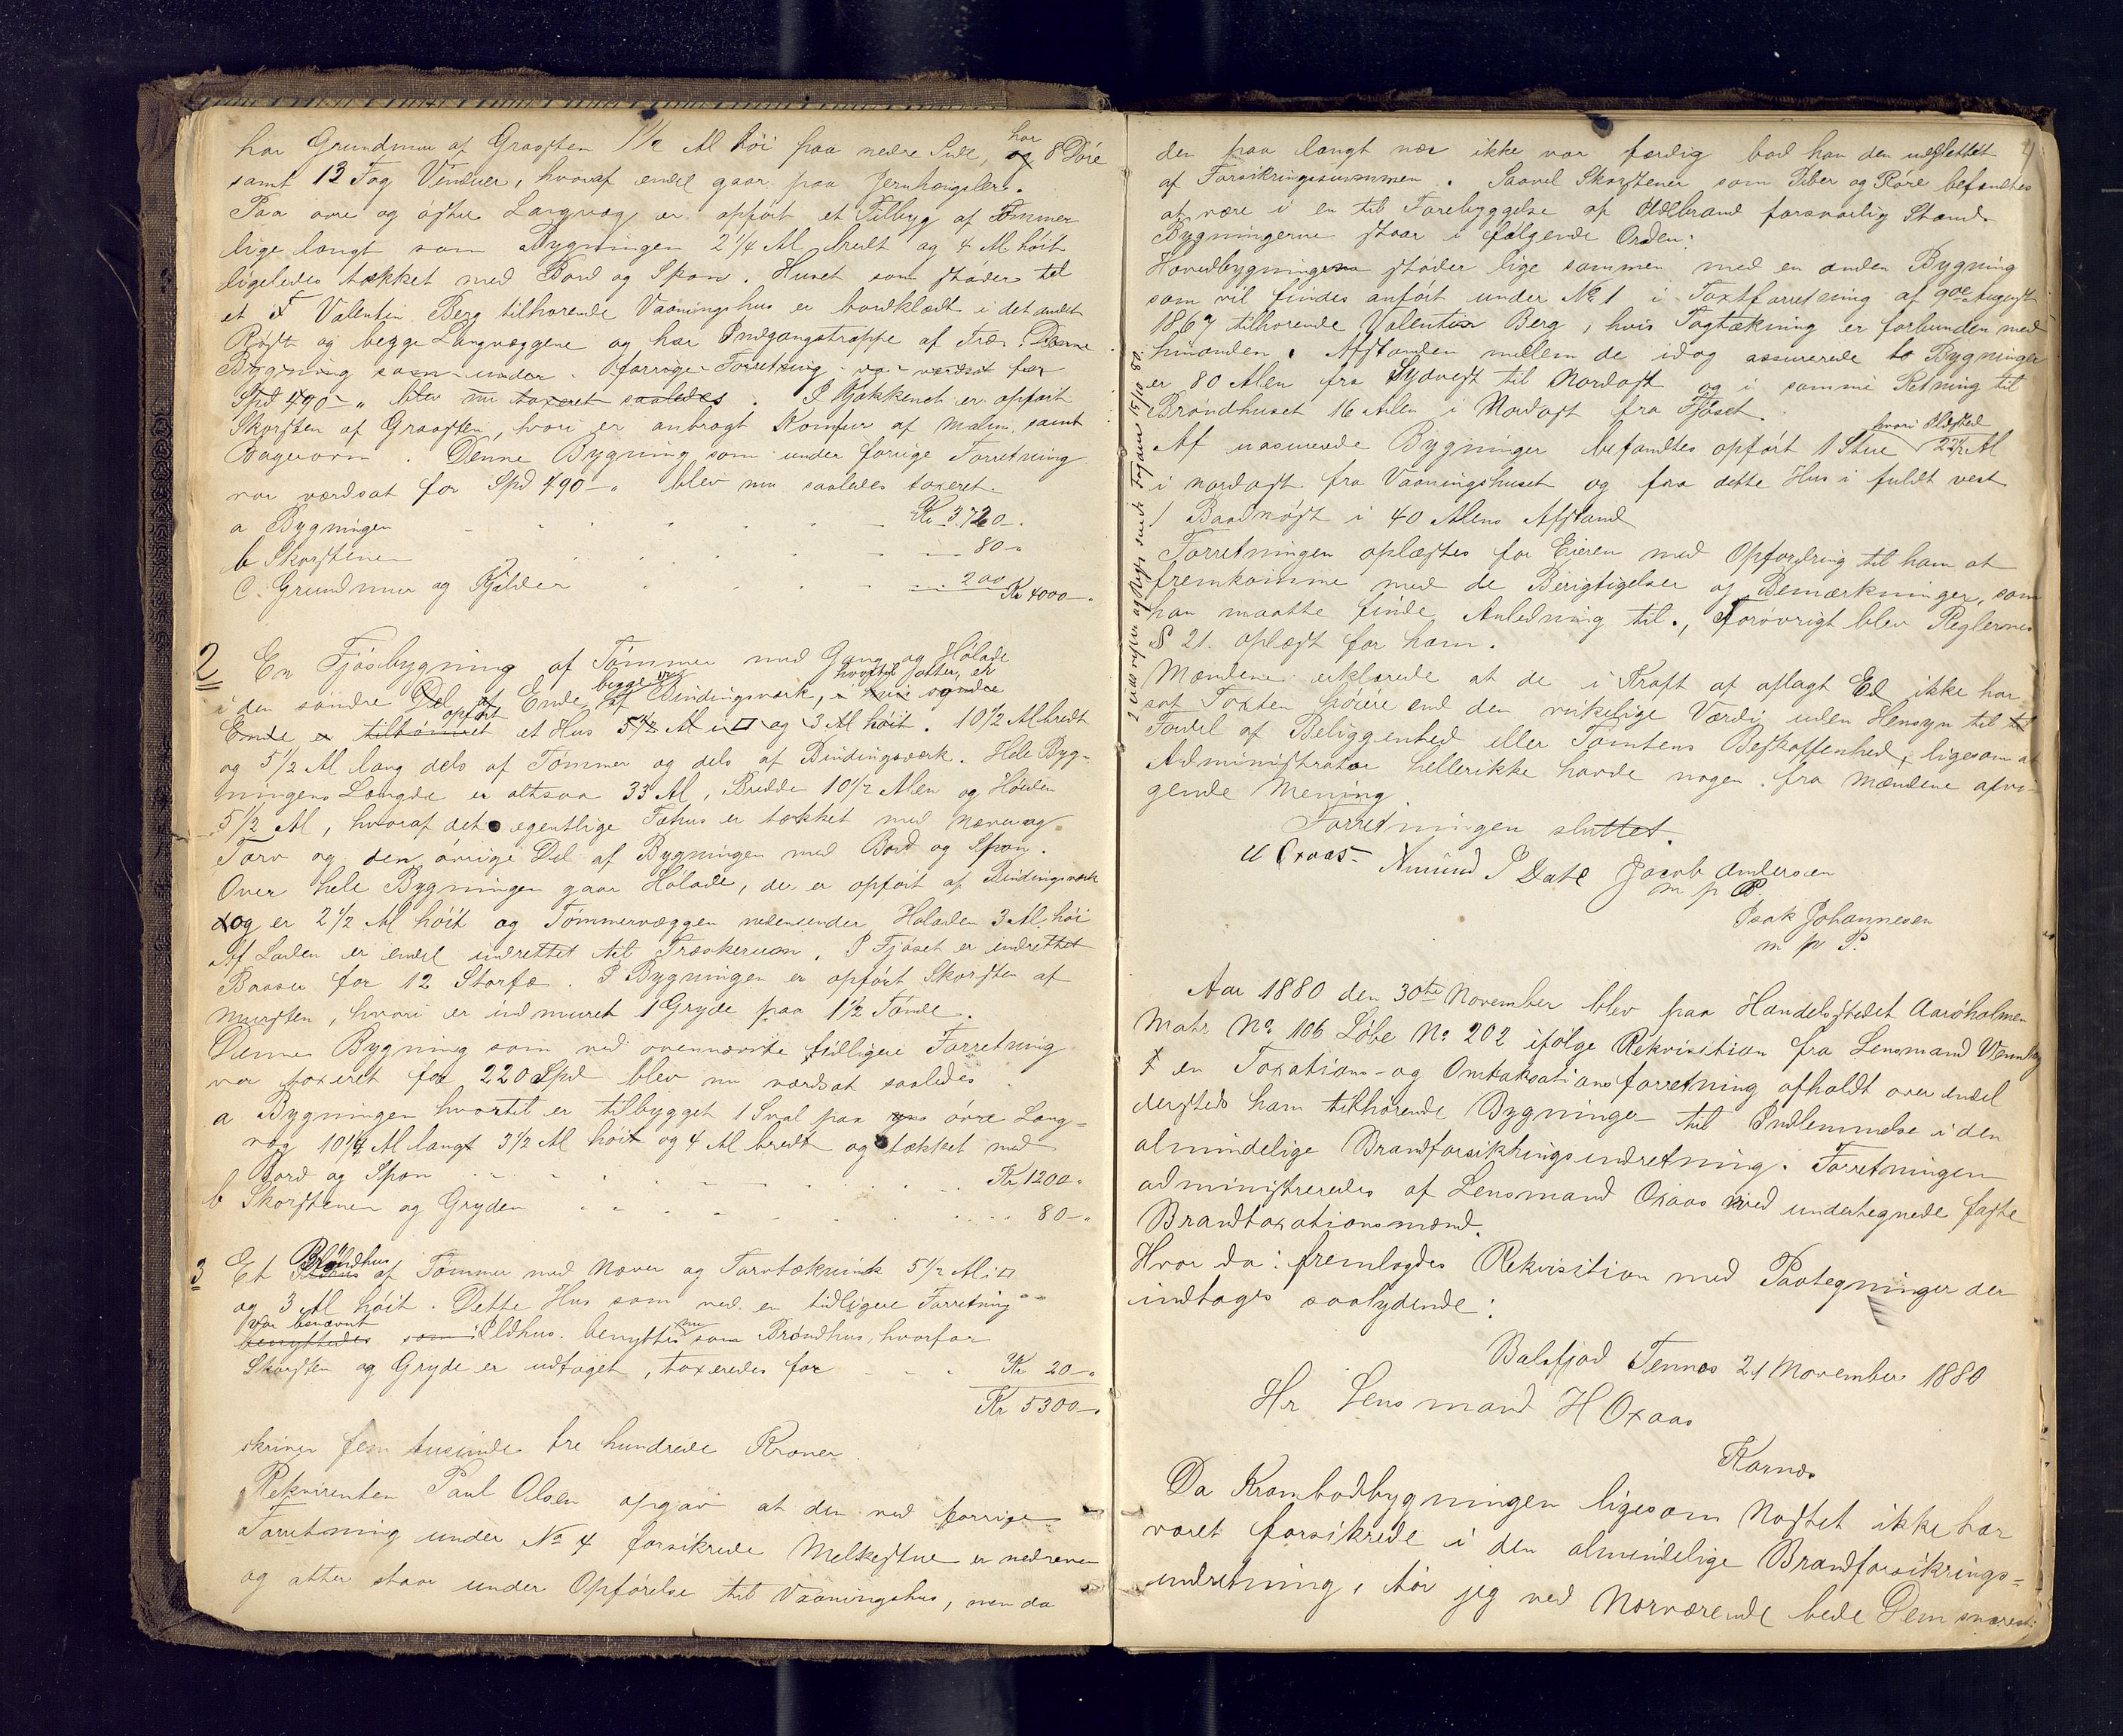 har Grundmur af Graasten 1 1/2 Al høi paa nedre Side, og har 8 Døre
samt 13 Fag Vinduer, hvoraf endel gaar paa Jernhængsler.
Paa øvre og østre Langvæg er opført et Tilbyg af Tømmer
lige langt som Bygningen 2 1/4 Al bredt og 4 Al høit
ligeledes tækket med Bord og Spon. Huset som støder til
et Valentin Berg tilhørende Vaaningshus er bordklædt i det andet
Røst og begge Langvæggene og har Indgangstrappe af Træ. Denne
Bygning som under forrige Forretning var værdsat for
Spd 490 - „ blev nu taxeret saaledes. I Kjøkkenet er opført
Skorsten af Graasten, hvori er anbragt Komfur af Malm, samt
Bagerovn. Denne Bygning som under forrige Forretning
var værdsat for Spd 490 - „ blev nu saaledes taxeret.
a Bygningen Kr 3720 -
b Skorstenen 80 -
c. Grundmur og Kjælder 200 Kr 4000 -
2 En Fjøsbygning af Tømmer med Gang og Hølade
i den søndre Del af Ende begge af Bindingsværk, hvortil atter, er
Ende er tilbømret opført et Hus 5 1/2 Al i □ og 3 Al høit. 10 1/2 Al bredt
og 5 1/2 Al lang dels af Tømmer og dels af Bindingsværk. Hele Byg-
ningens Længde er altsaa 33 Al, Bredde 10 1/2 Alen og Høiden
5 1/2 Al, hvoraf det egentlige Fæhus er tækket med Næver og
Tørv og den øvrige Del af Bygningen med Bord og Spon.
Over hele Bygningen gaar Hølade, der er opført af Bindingsværk
og er 2 1/2 Al høit og Tømmervæggen nedenunder Høladen 3 Al høi
Af Laden er endel indrettet til Træskerum. I Fjøset er indrettet
Baaser for 12 Storfæ. I Bygningen er opført Skorsten af
Mursten, hvori er indmuret 1 Gryde paa 1 1/2 Tønde.
Denne Bygning som ved ovennævnte tidligere Forretning
var taxeret for 220 Spd blev nu værdsat saaledes
a Bygningen hvortil er tilbygget 1 Sval paa øvre Lang-
væg 10 1/2 Al langt 3 1/2 Al høit og 4 Al bredt og tækket med
Bord og Spon Kr 1200 -
b Skorstenen og Gryden 80 - „
3 Et Brøndhus af Tømmer med Næver og Tørvtækning 5 1/2 Al i □
og 3 Al høit. Dette Hus som ved en tidligere Forretning
benyttedes var benævnt som Ildhus. benyttes nu som Brøndhus, hvorfor
Skorsten og Gryde er udtaget, taxeredes for Kr 20 - „
Kr 5300 - „
skriver fem tusinde tre hundrede Kroner.
Rekvirenten Paul Olsen opgav at den ved forrige
Forretning under No 4 forsikrede Melkestue er nedreven
og atter staar under Opførelse til Vaaningshus, men da
den paa langt nær ikke var færdig bad han den udslettet
af Forsikringssummen. Saavel Skorstener som Piber og Røre befandtes
at være i en til Forebyggelse af Ildebrand forsvarlig Stand.
Bygningerne staar i følgende Orden:
Hovedbygningen støder lige sammen med en anden Bygning
som vil findes anført under No 1 i Taxtforretning af 9de August
1867 tilhørende Valentin Berg, hvis Tagtækning er forbunden med
hinanden. Afstanden mellem de idag assurerede to Bygninger
er 80 Alen fra Sydvest til Nordost og i samme Retning til
Brøndhuset 16 Alen i Nordost fra Fjøset.
Af uassurerede Bygninger befandtes opført 1 Stue hvori Ildsted 22 1/2 Al
i nordost fra Vaaningshuset og fra dette Hus i fuldt vest
1 Baadnøst i 40 Alens Afstand
Forretningen oplæstes for Eieren med Opfordring til ham at
fremkomme med de Berigtigelser og Bemærkninger, som
han maatte finde Anledning til., Forøvrigt blev Reglernes
§ 21. oplæst for ham.
Mændene erklærede at de i Kraft af aflagt Ed ikke har
sat Taxten høiere end den virkelige Værdi uden Hensyn til
Fordel af Beliggenhed eller Tomtens Beskaffenhed, ligesom at
Administrator hellerikke havde nogen fra Mændene afvi-
gende Mening
Forretningen sluttet.
H Oxaas Amund P Dahl Jacob Andersen
m p P.
Isak Johannesen
m p P.
Aar 1880 den 30te November blev paa Handelsstedet Aarøholmen
Matr No 106 Løbe No 202 ifølge Rekvisition fra Lensmand Wennberg
en Taxations- og Omtaxationsforretning afholdt over endel
dersteds ham tilhørende Bygninger til Indlemmelse i den
almindelige Brandforsikringsindretning. Forretningen
administreredes af Lensmand Oxaas med undertegnede faste
Brandtaxationsmænd.
Hvor da: fremlagdes Rekvisition med Paategninger der
indtages saalydende:
Balsfjord Tennes 21 November 1880
Hr Lensmand H Oxaas
Karnes
Da Krambodbygningen ligesom Nøstet ikke har
været forsikrede i den almindelige Brandforsikrings-
indretning, tør jeg ved Nærværende bede Dem snarest